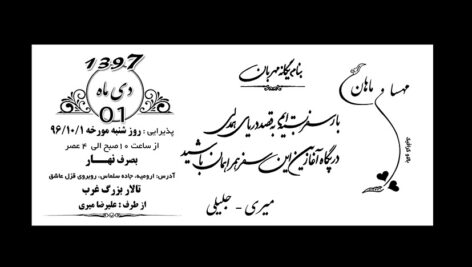 بنام یگانه مهربان
مهسا و ماهان
بار سفر بسته ایم به قصد دریای همدلی
در پگاه آغازین این سفر همراهمان باشید
میری - جلیلی
1397
دی ماه
01
پذیرایی : روز شنبه مورخه ۹۶/۱۰/۱
از ساعت ۱۰ صبح الی ۴ عصر
بصرف نهار
آدرس: ارومیه، جاده سلماس، روبروی قزل عاشق
تالار بزرگ غرب
از طرف : علیرضا میری